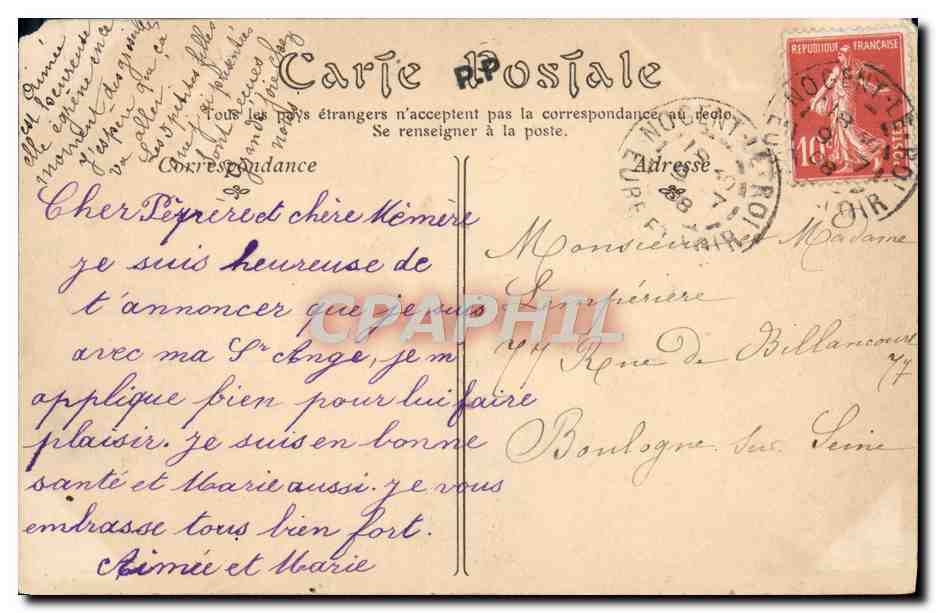 Aimée
est heureuse
elle
en ce
moment
J'espère que ça
va aller
Les petites filles
que j'ai
sont
chez
nous
Carte Postale
P.P
Tous les pays étrangers n'acceptent pas la correspondance au recto
Se renseigner à la poste.
Correspondance
Adresse
REPUBLIQUE FRANÇAISE
10
NOGENT-LE-ROI
EURE-ET-LOIR
NOGENT-LE-ROI
EURE-ET-LOIR
Cher Pépère et chère Mémère
je suis heureuse de
t'annoncer que je suis
avec ma Sr Ange, je m
applique bien pour lui faire
plaisir. je suis en bonne
santé et Marie aussi. je vous
embrasse tous bien fort.
Aimée et Marie
Monsieur et Madame
Lempérière
77 Rue de Billancourt
77
Boulogne sur Seine
CPAPHIL